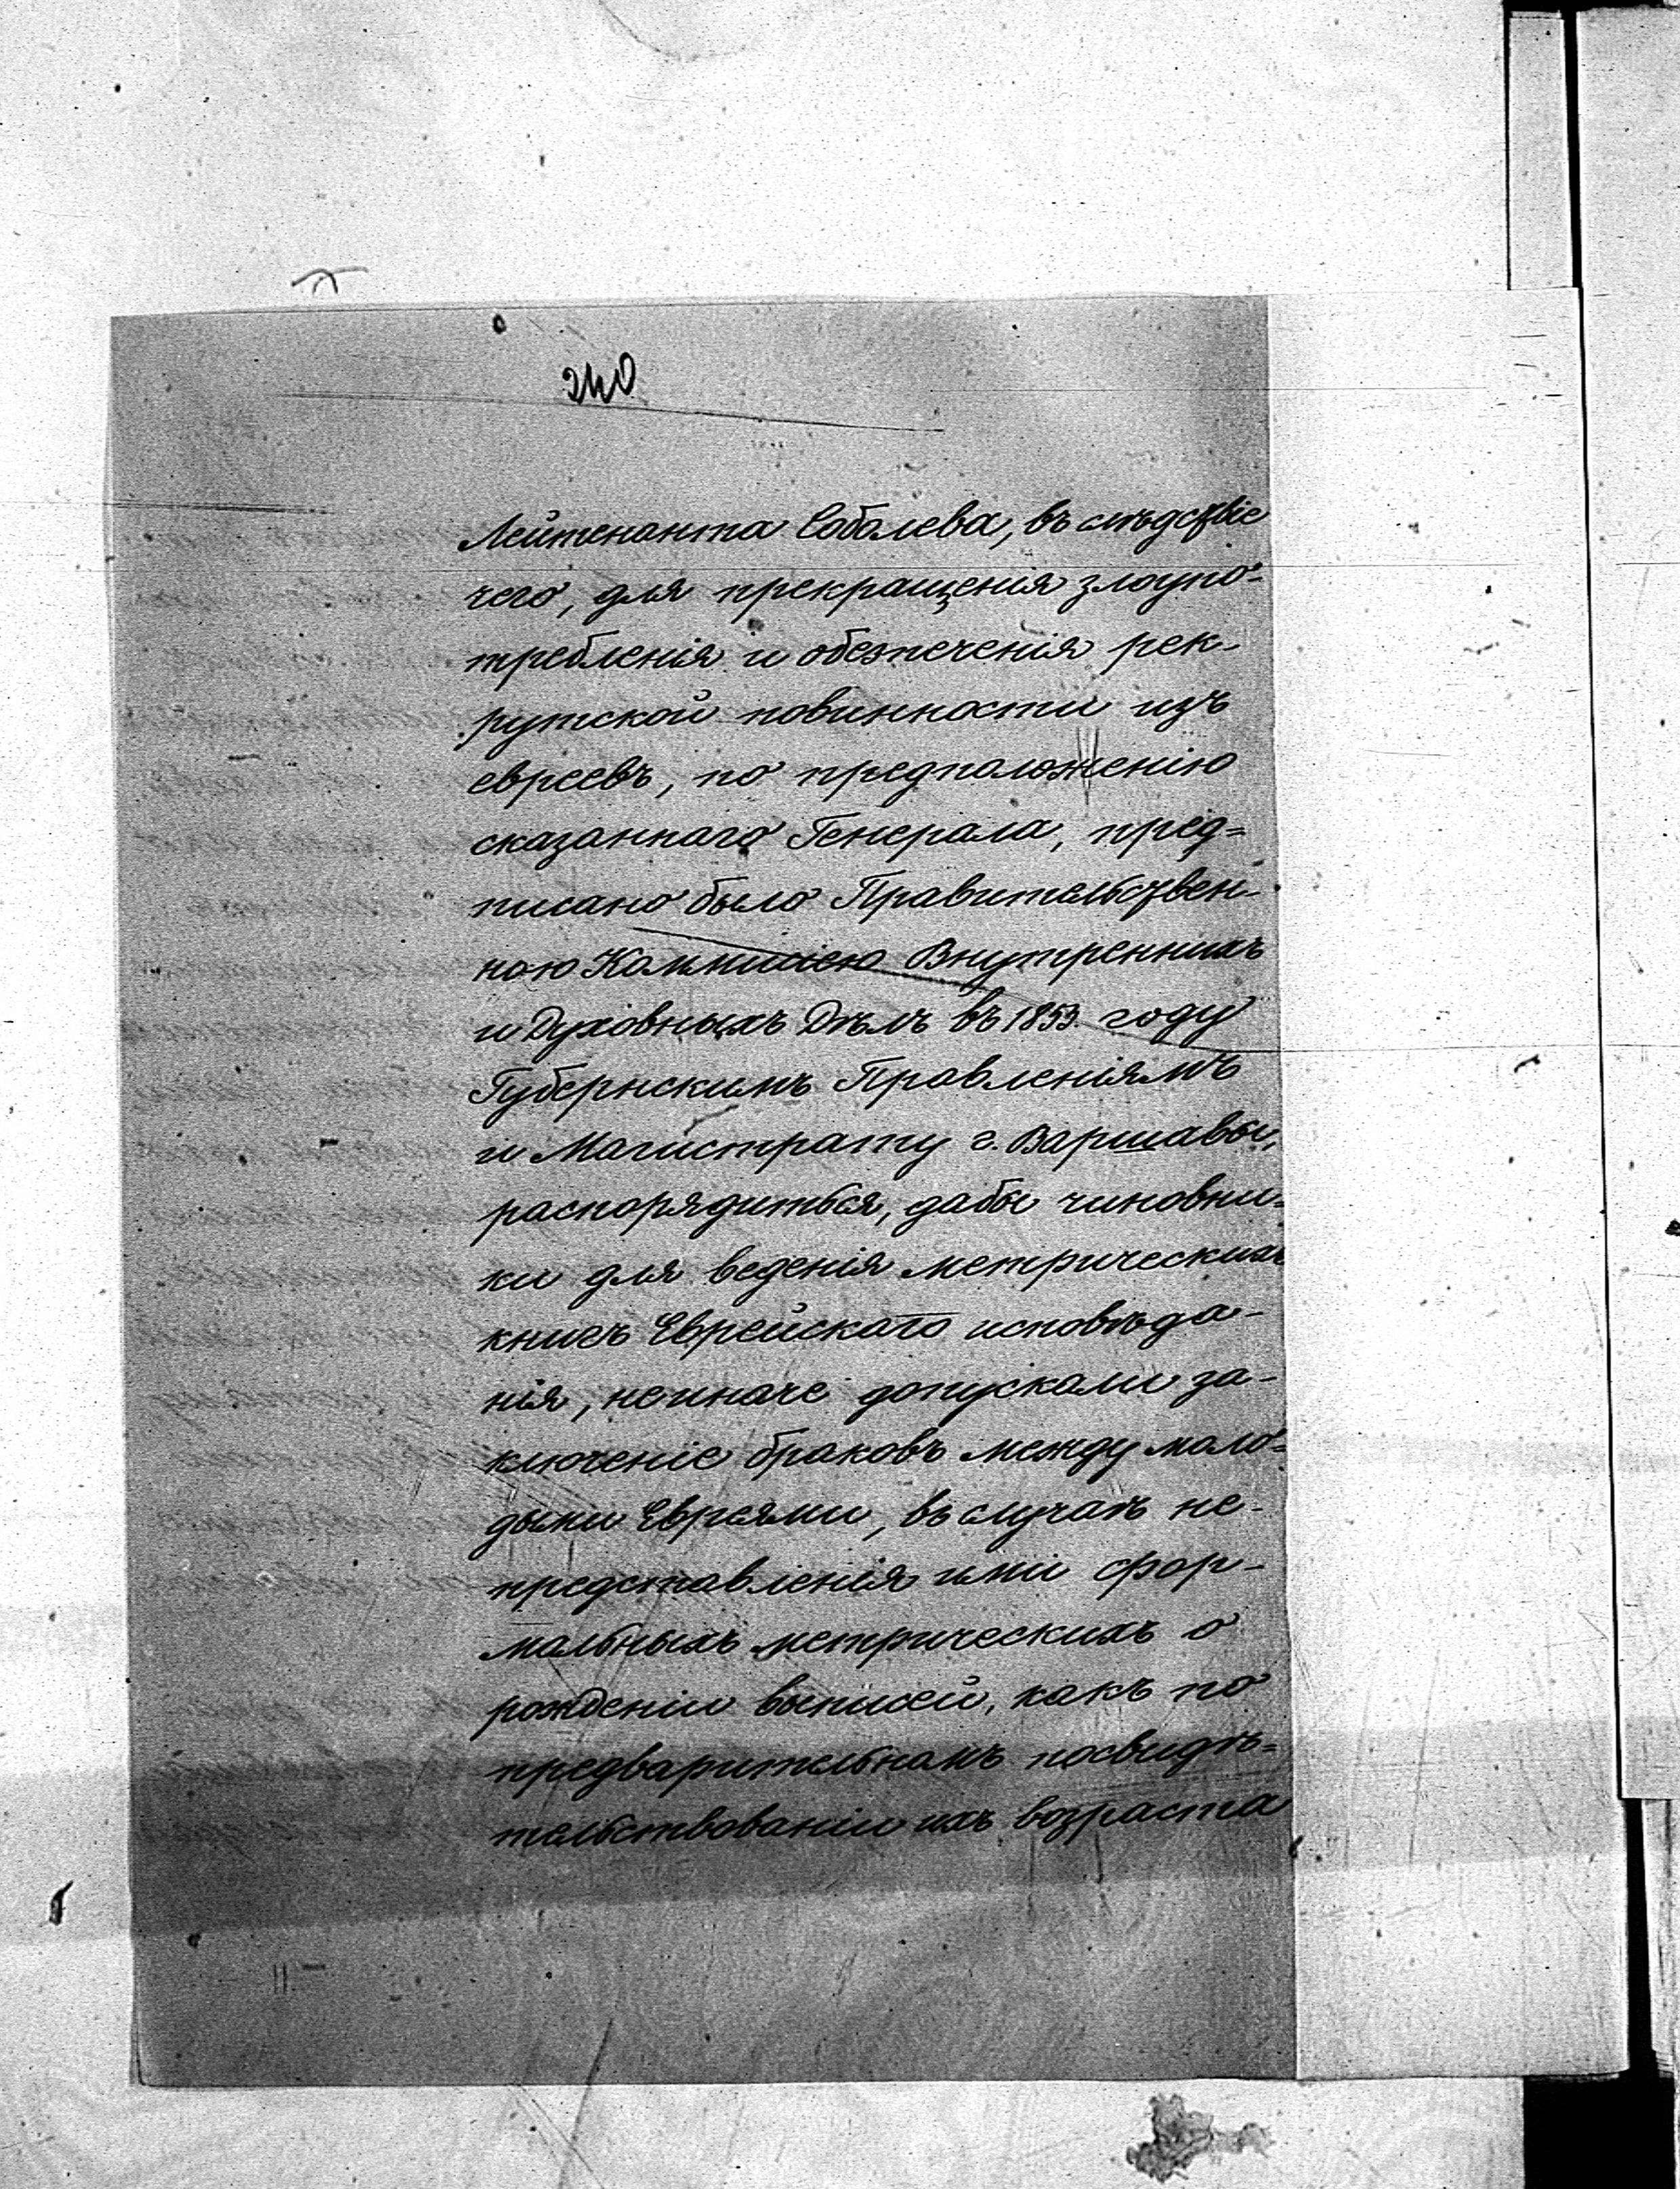 240
Лейтенанта Соболева, въ слѣдствіе
чего, для прекращенія злоупо-
требленія и обезпеченія рек-
рутской повинности изъ
евреевъ, по предположенію
сказаннаго Генерала, пред=
писано было Правительствен-
ною Коммисіею Внутреннихъ
и Духовныхъ Дѣлъ въ 1853 году
Губернскимъ Правленіямъ
и Магистрату г. Варшавы,
распорядиться, дабы чиновни-
ки для веденія метрическихъ
книгъ Еврейскаго исповѣда-
нія, неиначе допускали за-
ключеніе браковъ между моло-
дыми Евреями, въ случаѣ не-
представленія ими фор-
мальныхъ метрическихъ о
рожденіи выписей, какъ по
предварительномъ посвидѣ=
тельствованіи ихъ возраста